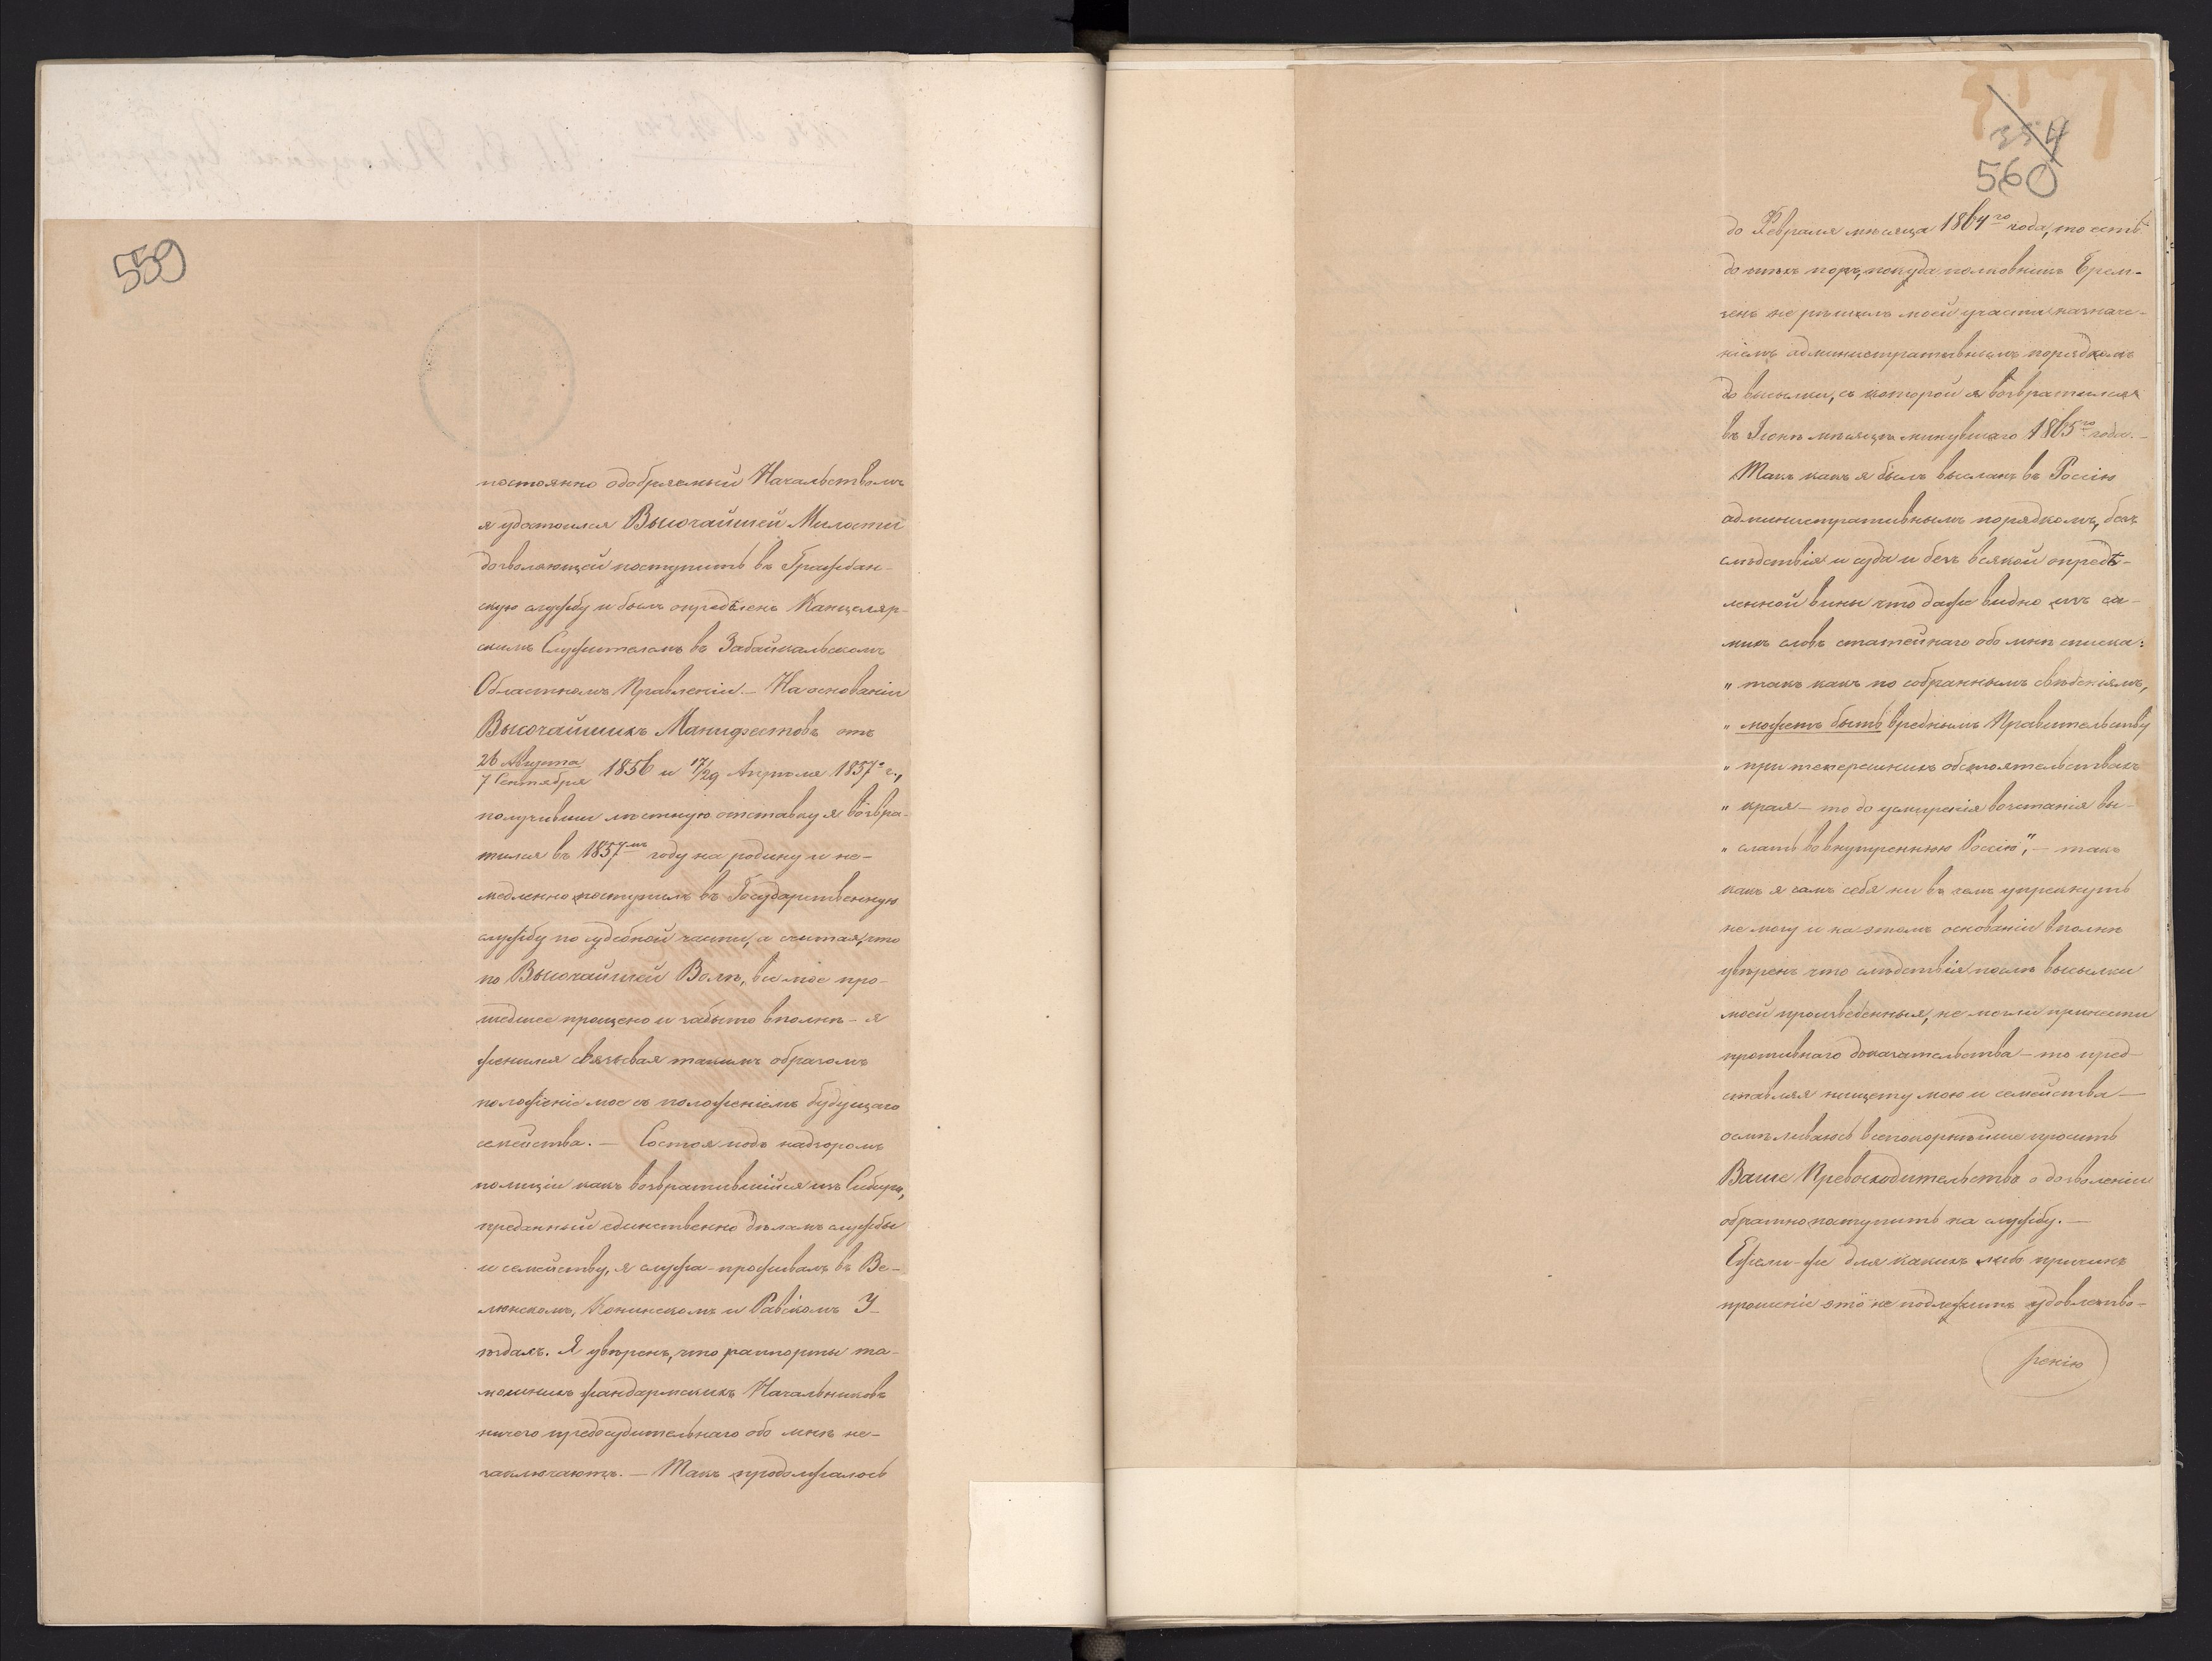 559
постоянно одобряемый Начальствомъ
я удостоился Высочайшей Милости
дозволяющей поступить въ Граждан-
скую службу и былъ опредѣленъ Канцеляр-
скимъ Служителемъ въ Забайкальскомъ
Областномъ Правленіи. – На основаніи
Высочайшихъ Манифестовъ отъ
26 Августа / 7 Сентября 1856 и 17/29 Апрѣля 1857 г.,
получивши местную отставку я возвра-
тился въ 1857мъ году на родину и не-
медленно поступилъ въ Государственную
службу по судебной части, а считая, что
по Высочайшей Волѣ, все мое про-
шедшее прощено и забыто вполнѣ – я
женился связывая такимъ образомъ
положеніе мое съ положеніемъ будущаго
семейства. – Состоя подъ надзоромъ
полиціи какъ возвратившійся изъ Сибири,
преданный единственно дѣламъ службы
и семейству, я служа – проживалъ въ Ве-
люнскомъ, Конинскомъ и Равскомъ У-
ѣздахъ. Я увѣренъ, что раппорты та-
мошнихъ жандармскихъ Начальниковъ
ничего предосудительнаго обо мнѣ не-
заключаютъ. – Такъ продолжалось
354
560
до Февраля мѣсяца 1864го года, то есть
до тѣхъ поръ, покуда полковникъ
не рѣшилъ моей участи назначе-
ніемъ административнымъ порядкомъ
до высылки, съ которой я возвратился
въ Іюнѣ мѣсяцѣ минувшаго 1865го года. –
Такъ какъ я былъ высланъ въ Россію
административнымъ порядкомъ, безъ
слѣдствія и суда и безъ всякой опредѣ-
ленной вины что даже видно изъ са-
михъ словъ статейнаго обо мнѣ списка:
„ такъ какъ по собраннымъ свѣденіямъ,
„ можетъ быть вреднымъ Правительству
„ при теперешнихъ обстоятельствахъ
„ края – то до усмиренія возстанія вы-
„ слать во внутреннюю Россію", – такъ
какъ я самъ себя ни въ чемъ упрекнуть
не могу и на этомъ основаніи вполнѣ
увѣренъ что слѣдствія послѣ высылки
моей произведенныя, не могли принести
противнаго доказательства – то пред-
ставляя нищету мою и семейства –
осмѣливаюсь всепокорнѣйше просить
Ваше Превосходительство о дозволеніи
обратно поступить на службу. –
Ежели-же для какихъ либо причинъ
прошеніе это не подлежитъ удовлетво-
ренію